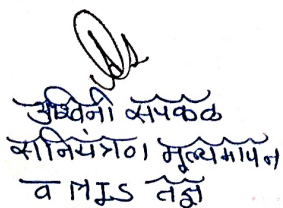 अश्विनी सपकळ
सनियंत्रण मूल्यमापन
व MIS तज्ञ